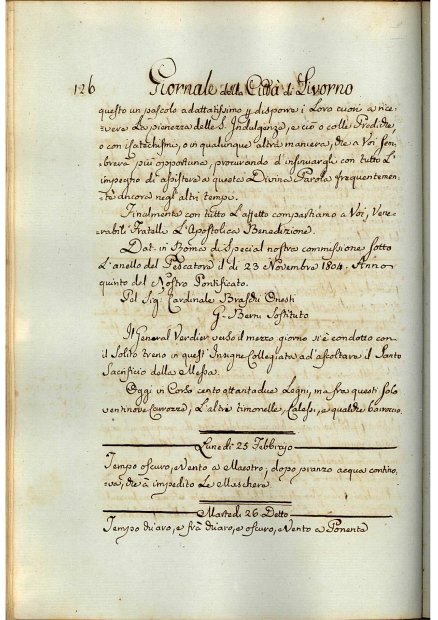 126 Giornale della Città di Livorno
questo un pascolo adattatissimo p disporre i Loro cuori a rice=
vere La pienezza delle S. Indulgenze, e ciò o colle Prediche,
o con Catechismi, o in qualunque altra maniera, che a Voi sem=
brerà più opportuna, procurando d'insinuargli con tutto L'
impegno di assistere a questa Divina Parola frequentemen=
te ancora negl'altri tempi.
Finalmente con tutto L'affetto compartiamo a Voi, Vene=
rabil Fratello L'Apostolica Benedizione.
Dat. in Roma di Special nostra commissione sotto
L'anello del Pescatore il dì 23 Novembre 1804. Anno
quinto del Nostro Pontificato.
Pel Sig. Cardinale Braschi Onesti
G. Berni Sostituto
Il General Verdier verso il mezzo giorno si è condotto con
il Solito treno in quest'Insigne Collegiata ad ascoltare il Santo
Sacrifizio della Messa.
Oggi in Corso cento ottantadue Legni, ma fra questi solo
ventinove Carrozze, L'altre timonelle, Calessi, e qualche baroccio.
Lunedì 25 Febbrajo
Tempo oscuro, e Vento a Maestro; dopo pranzo acqua contino=
va, che à impedito Le Maschere.
Martedì 26 Detto
Tempo chiaro, e frà chiaro, e oscuro, e Vento a Ponente